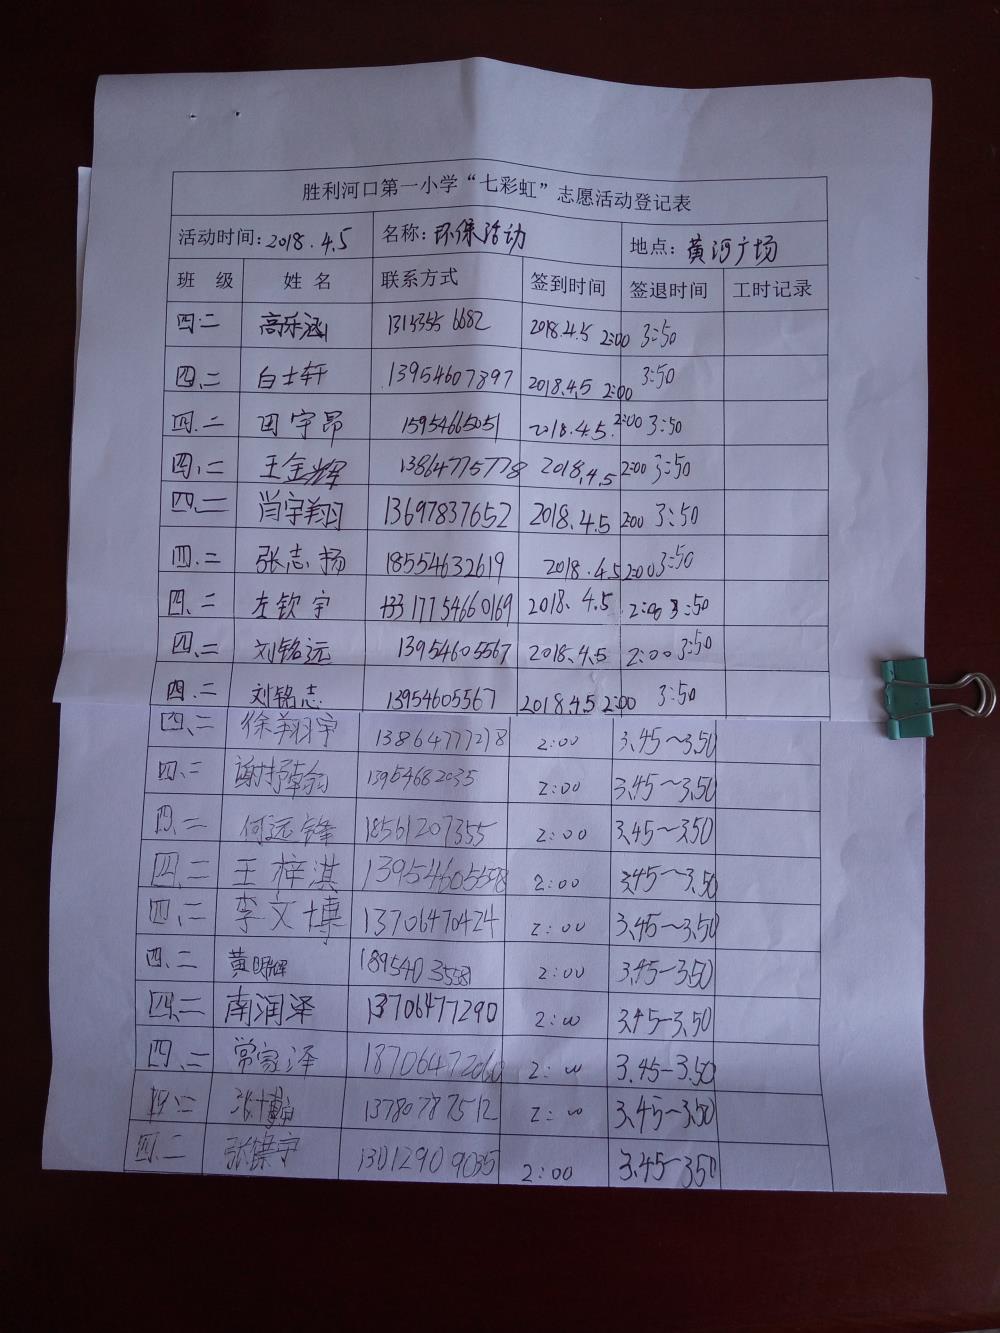 胜利河口第一小学“七彩虹”志愿活动登记表
活动时间:2018.4.5 名称:环保活动 地点:黄河广场
班 级 姓 名 联系方式 签到时间 签退时间 工时记录
四.二 高乐涵 1315355 6682 2018.4.5 2:00 3:50
四.二 白士轩 13954607897 2018.4.5 2:00 3:50
四.二 田宇昂 15954665051 2018.4.5. 2:00 3:50
四.二 王金辉 13864775778 2018.4.5 2:00 3:50
四.二 肖宇翔 13697837652 2018.4.5 2:00 3:50
四.二 张志扬 18554632619 2018.4.5 2:00 3:50
四.二 左钦宇 17754660169 2018.4.5 2:00 3:50
四.二 刘铭远 13954605567 2018.4.5 2:00 3:50
四.二 刘铭志 13954605567 2018.4.5 2:00 3:50
四.二 徐翔宇 13864777278 2:00 3.45~3.50
四.二 13954682035 2:00 3.45~3.50
四.二 何远锋 18561207355 2:00 3.45~3.50
四.二 王梓淇 13954605558 2:00 3.45~3.50
四.二 李文博 13706470424 2:00 3.45~3.50
四.二 黄明辉 189540 35581 2:00 3.45-3.50
四.二 南润泽 13706477290 2:00 3.45-3.50
四.二 常家泽 18706472060 2:00 3.45-3.50
四.二 13780787512 2:00 3.45~3.50
四.二 张镁宇 1301290 9035 2:00 3.45-350